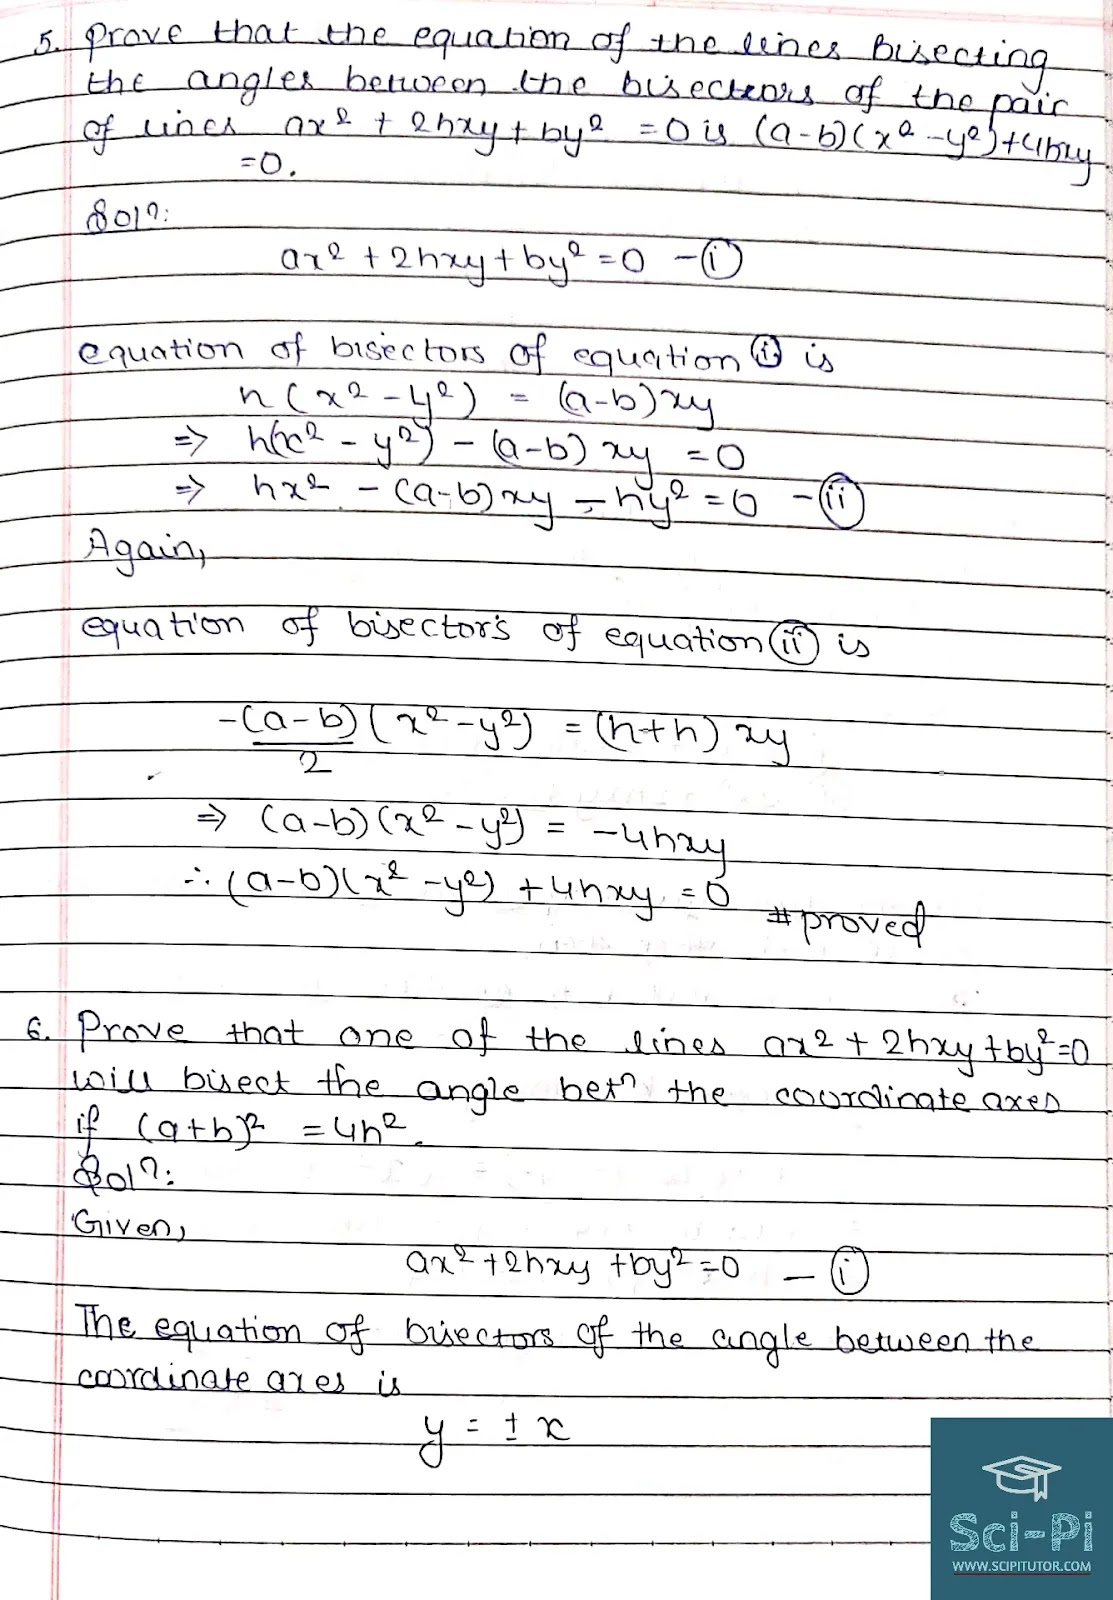 5. Prove that the equation of the lines Bisecting
the angles between the bisectors of the pair
of lines ax² + 2hxy + by² = 0 is (a-b)(x² - y²) + 4hxy
= 0.
Solⁿ:
ax² + 2hxy + by² = 0 - (i)
equation of bisectors of equation (i) is
h(x² - y²) = (a-b)xy
=> h(x² - y²) - (a-b)xy = 0
=> hx² - (a-b)xy - hy² = 0 - (ii)
Again,
equation of bisectors of equation (ii) is
-(a-b)/2 (x² - y²) = (h+h) xy
=> (a-b)(x² - y²) = -4hxy
∴ (a-b)(x² - y²) + 4hxy = 0
# proved
6. Prove that one of the lines ax² + 2hxy + by² = 0
will bisect the angle betⁿ the coordinate axes
if (a+b)² = 4h².
Solⁿ:
Given,
ax² + 2hxy + by² = 0 - (i)
The equation of bisectors of the angle between the
coordinate axes is
y = ± x
Sci-Pi
WWW.SCIPITUTOR.COM